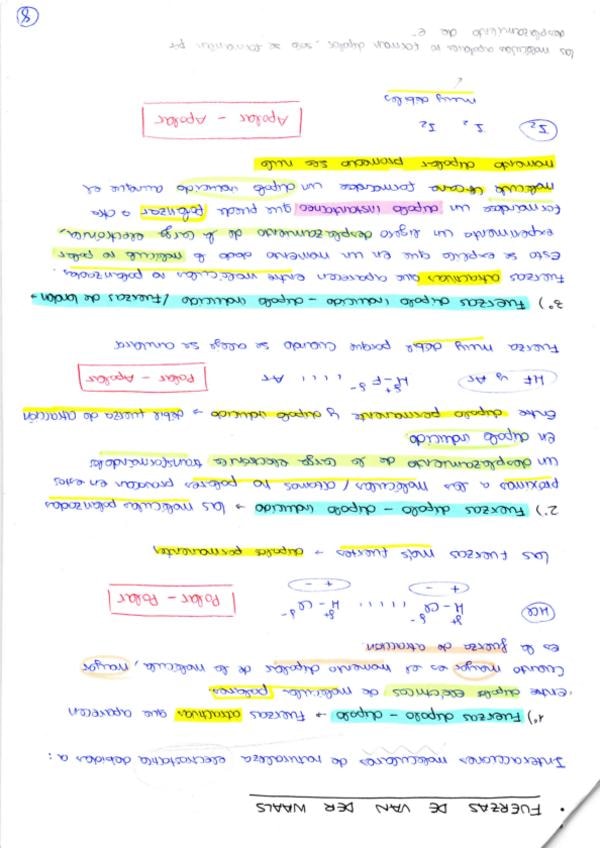 • FUERZAS DE VAN DER WAALS
Interacciones moleculares de naturaleza electrostática debidas a:
1º) Fuerzas dipolo - dipolo → Fuerzas atractivas que aparecen
entre dipolos eléctricos de moléculas polares.
Cuando mayor es el momento dipolar de la molécula, mayor
es la fuerza de atracción.
HCl δ+ H - Cl δ- ..... δ+ H - Cl δ- Polar - Polar
+ - + -
Las fuerzas más fuertes → dipolos permanentes
2º) Fuerzas dipolo - dipolo inducido → las moléculas polarizadas
próximas a los átomos / moléculas no polares provocan en estas
un desplazamiento de la carga electrónica transformándola
en dipolo inducido
Entre dipolo permanente y dipolo inducido → débil fuerza de atracción
HF y Ar δ+ H - F δ- ..... Ar Polar - Apolar
Fuerza muy débil porque cuando se aleje se anulará
3º) Fuerzas dipolo inducido - dipolo inducido / Fuerzas de London →
Fuerzas atractivas que aparecen entre moléculas no polarizadas.
Esto se explica que en un momento dado la molécula no polar
experimenta un ligero desplazamiento de la carga electrónica,
formándose un dipolo instantáneo que puede polarizar a otra
molécula cercana formándose un dipolo inducido aunque el
momento dipolar promedio sea nulo
I2 I2 I2 Apolar - Apolar
muy débiles
Las moléculas apolares no forman dipolos, solo se formarían por
desplazamiento de e-
8